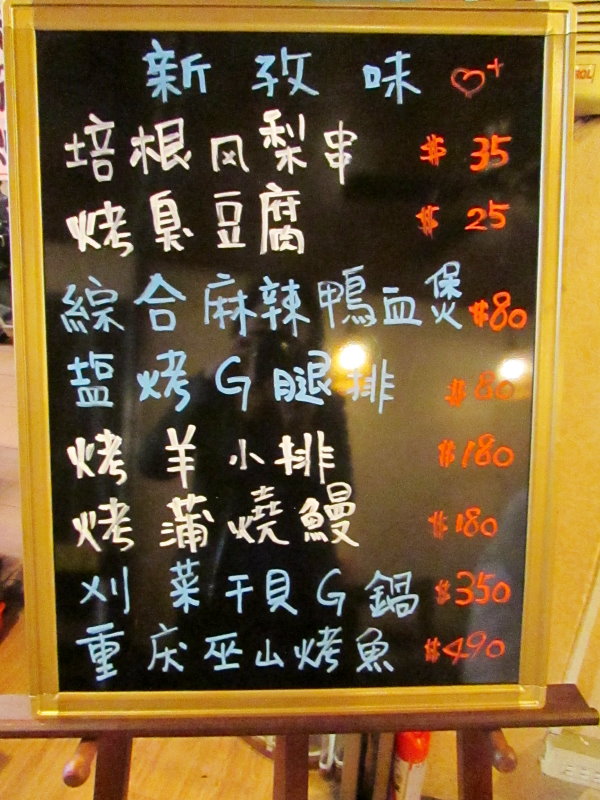 新孜味
培根风梨串 $35
烤臭豆腐 $25
綜合麻辣鴨血煲 $80
塩烤G腿排 $80
烤羊小排 $180
烤蒲燒鰻 $180
刈菜干貝G鍋 $350
重庆巫山烤魚 $490